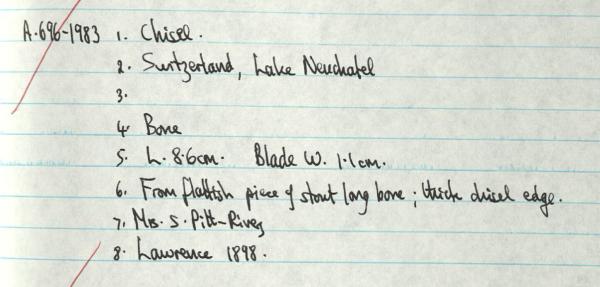 A.696-1983 1. Chisel.
2. Switzerland, Lake Neuchatel
3.
4. Bone
5. L. 8.6cm. Blade W. 1.1cm.
6. From flattish piece of stout long bone; thick chisel edge.
7. Mrs. S. Pitt-Rivers
8. Lawrence 1898.